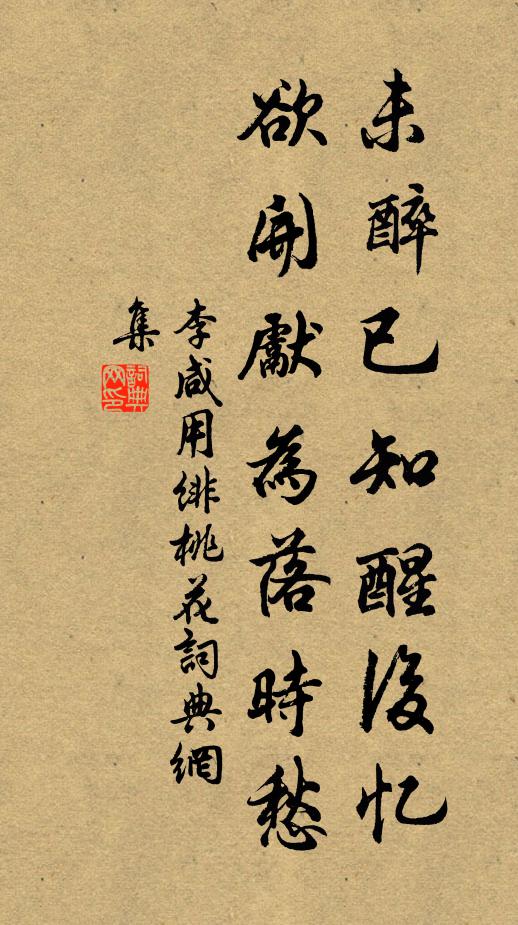 未醉已知醒後忆
欲開獻為落時愁
李咸用緋桃花詞典網
集
詞典
网印